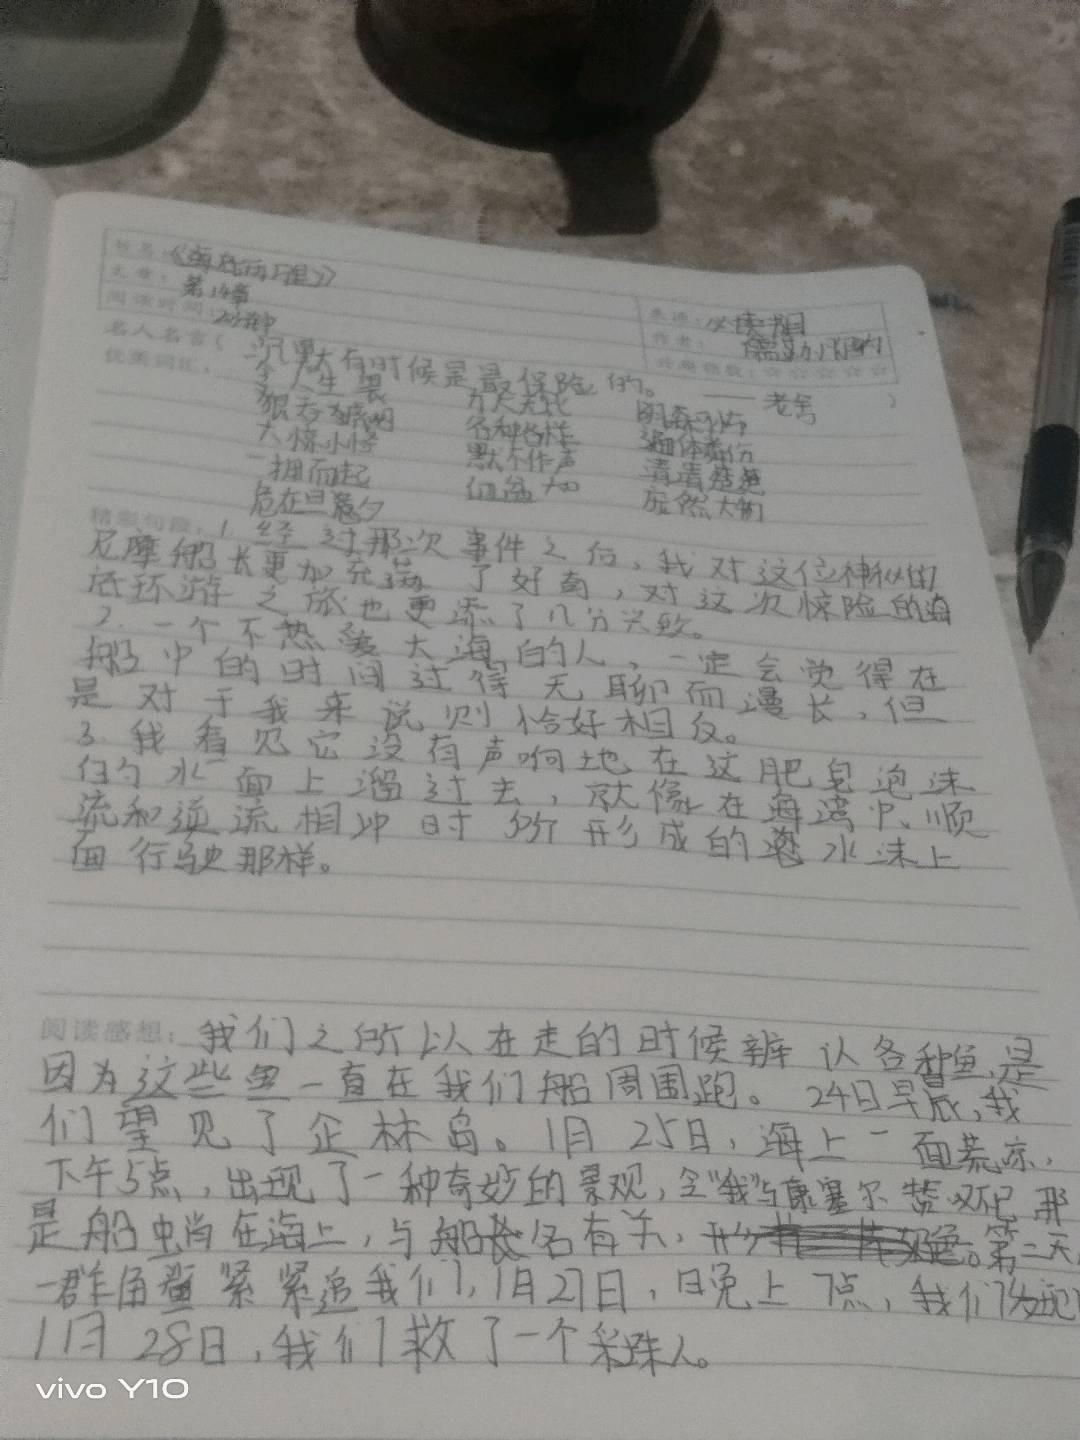 书名：《海底两万里》
文章：第14章
阅读时间：20分钟
来源：必读书目
作者：儒勒·凡尔纳
升级指数：☆☆☆☆☆
名人名言（沉默有时候是最保险的。
——老舍 ）
优美词汇：
狼吞虎咽
各种各样
遍体鳞伤
大惊小怪
默不作声
清清楚楚
一拥而起
庞然大物
危在旦夕
精彩句段：1.经过那次事件之后，我对这位神秘的
尼摩船长更加充满了好奇，对这次惊险的海
底环游之旅也更添了几分兴致。
2.一个不热爱大海的人，一定会觉得在
船中的时间过得无聊而漫长，但
是对于我来说则恰好相反。
3.我看见它没有声响地在这肥皂泡沫
的水面上溜过去，就像在海湾中、顺
流和逆流相冲时所形成的水沫上
面行驶那样。
阅读感想：我们之所以在走的时候辨认各种鱼，是
因为这些鱼一直在我们船周围跑。24日早晨，我
们望见了企林岛。1月25日，海上一面荒凉，
下午5点，出现了一种奇妙的景观，令“我”与康塞尔赞叹，那
是船蛸在海上，与船长名有关，第二天，
一群角鲨紧紧追我们，1月27日，晚上7点，我们发现
1月28日，我们救了一个采珠人。
vivo Y10